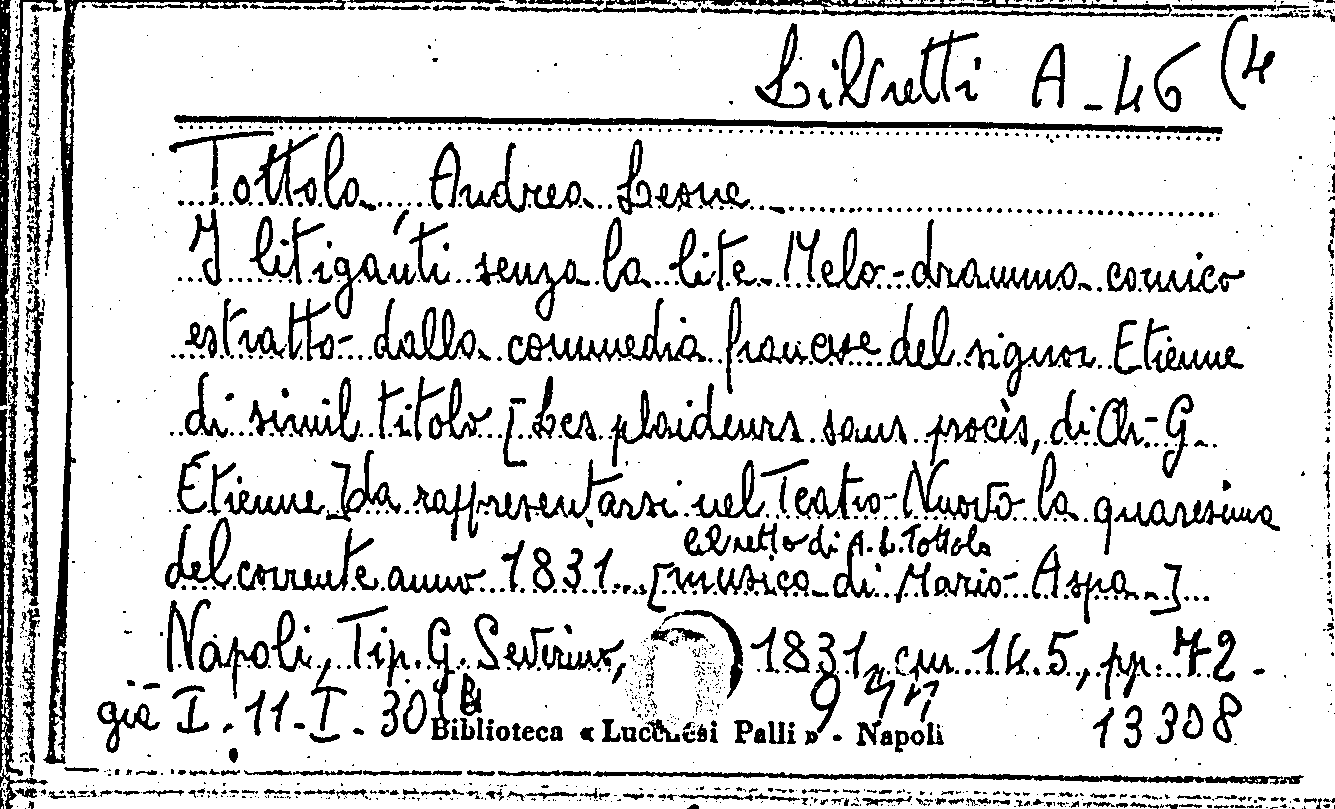 Libretti A-46 (4
Tottola Andrea Leone
I litiganti senza la lite. Melo-dramma comico
estratto dalla commedia francese del signor Etienne
di simil titolo [Les plaideurs sans procès, di Ch-G
Etienne] da rappresentarsi nel Teatro Nuovo la quaresima
del corrente anno 1831... libretto di A. L. Tottola
[musica di Mario Aspa]
Napoli, Tip. G. Severino, 1831, cm 14.5, pp. 72 -
già I-11-I-30 13308
Biblioteca « Lucchesi Palli » - Napoli